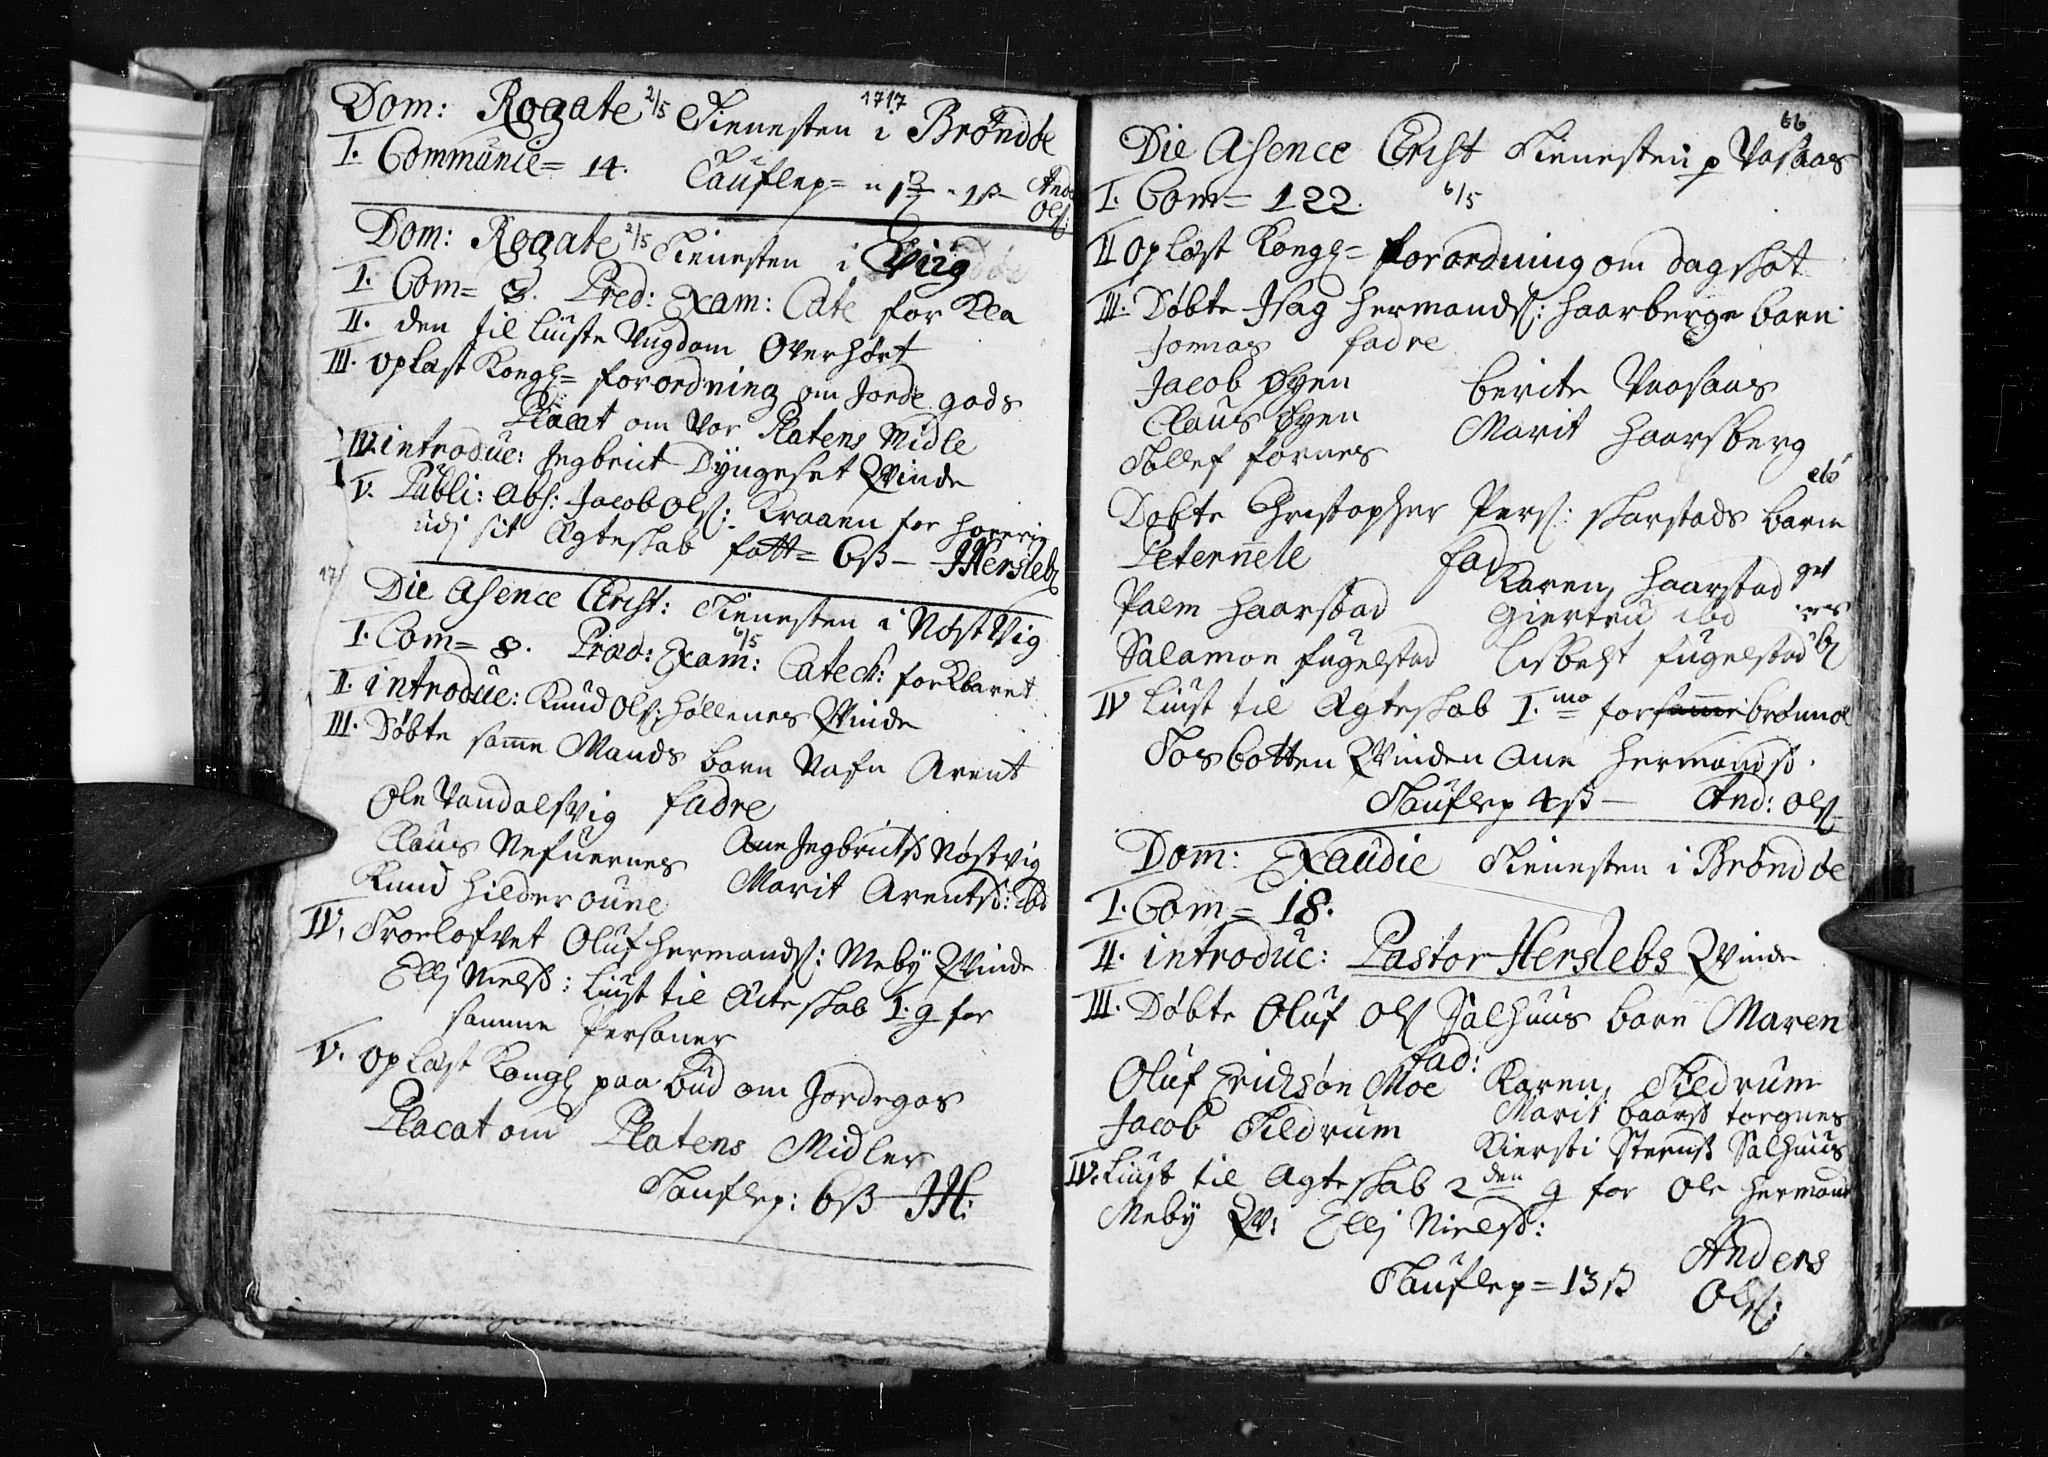 1717
Dom: Rogate 2/5 Tienesten i Brøndøe
I. Communic= 14. Tauflep= 1 ß Ande Ols:
Dom: Rogate 2/5 Tienesten i Wiig
I. Com= 3. Pred: Exam: Cate for Kla
II. den til liuste Ungdom Overhørt
III. oplæst Kongl= forordning om Jorde gods
Placat om Vor Platens Midle
IV. introduc: Ingbrict Dyngeset Qvinde
V. Publi: Abs: Jacob Ols: Kraaen for horerie
udj sit Ægteskab fatt= 6ß - JHersleb
Die Asence Christ: Tienesten i Nøst Vig
6/5
I. Com= 8. Præd: Exam: Catech: for Kbaret
II. introduc: Knud Ols: Høllenes Qvinde
III. Døbte samme Mands barn Nafn Arent
Ole Vandalsvig fadre
Claus Nefuernes Ane Ingbricts Nøstvig
Knud Hilderoune Marit Arentsd: ibd
IV. Troelofvet Oluf Hermands: Meby Qvinde
Elli Nielsd: liust til Ecteskab 1. g for
samme Personer
V. oplæst Kongl paabud om Jordegos
Placat om Platens Midler
Tauflep: 6ß JH:
66
Die Asence Christ Tienesten p Vosaas
I. Com= 122. 6/5
II oplæst Kongl= forordning om dag skat
III. Døbte Isag Hermands: Haarberge barn
Jonas fadre
Jacob Øyen berite Vaasaas
Claus Øyen Marit Haarsberg
Tollef fornes
Døbte Christopher Pers: skarstads barn
Peternele fad
Karen Haarstad
Palm Haarstad Giertru ibd
Salamon fugelstad Lisbeht fugelstad
IV liust til Ægteskab 1.mo for samme brønnol
Tosbotten Qvinden Ane Hermandsd.
Tauflep 4ß - And: Ols
Dom: Exaudie Tienesten i Brøndøe
I. Com= 18.
II. introduc: Pastor Herslebs Qvinde
III. Døbte Oluf Ols Salhuus barn Maren
fad:
Oluf Erichsøn Moe Karen Tildrum
Jacob Tildrum Marit baarsd torgnes
Kiersti Stensd Salhuus
IV. liust til Ægteskab 2den g for Ole Hermans
Meby Qv: Elli Nielsd:
Tauflep= 13ß Anders
Ols: